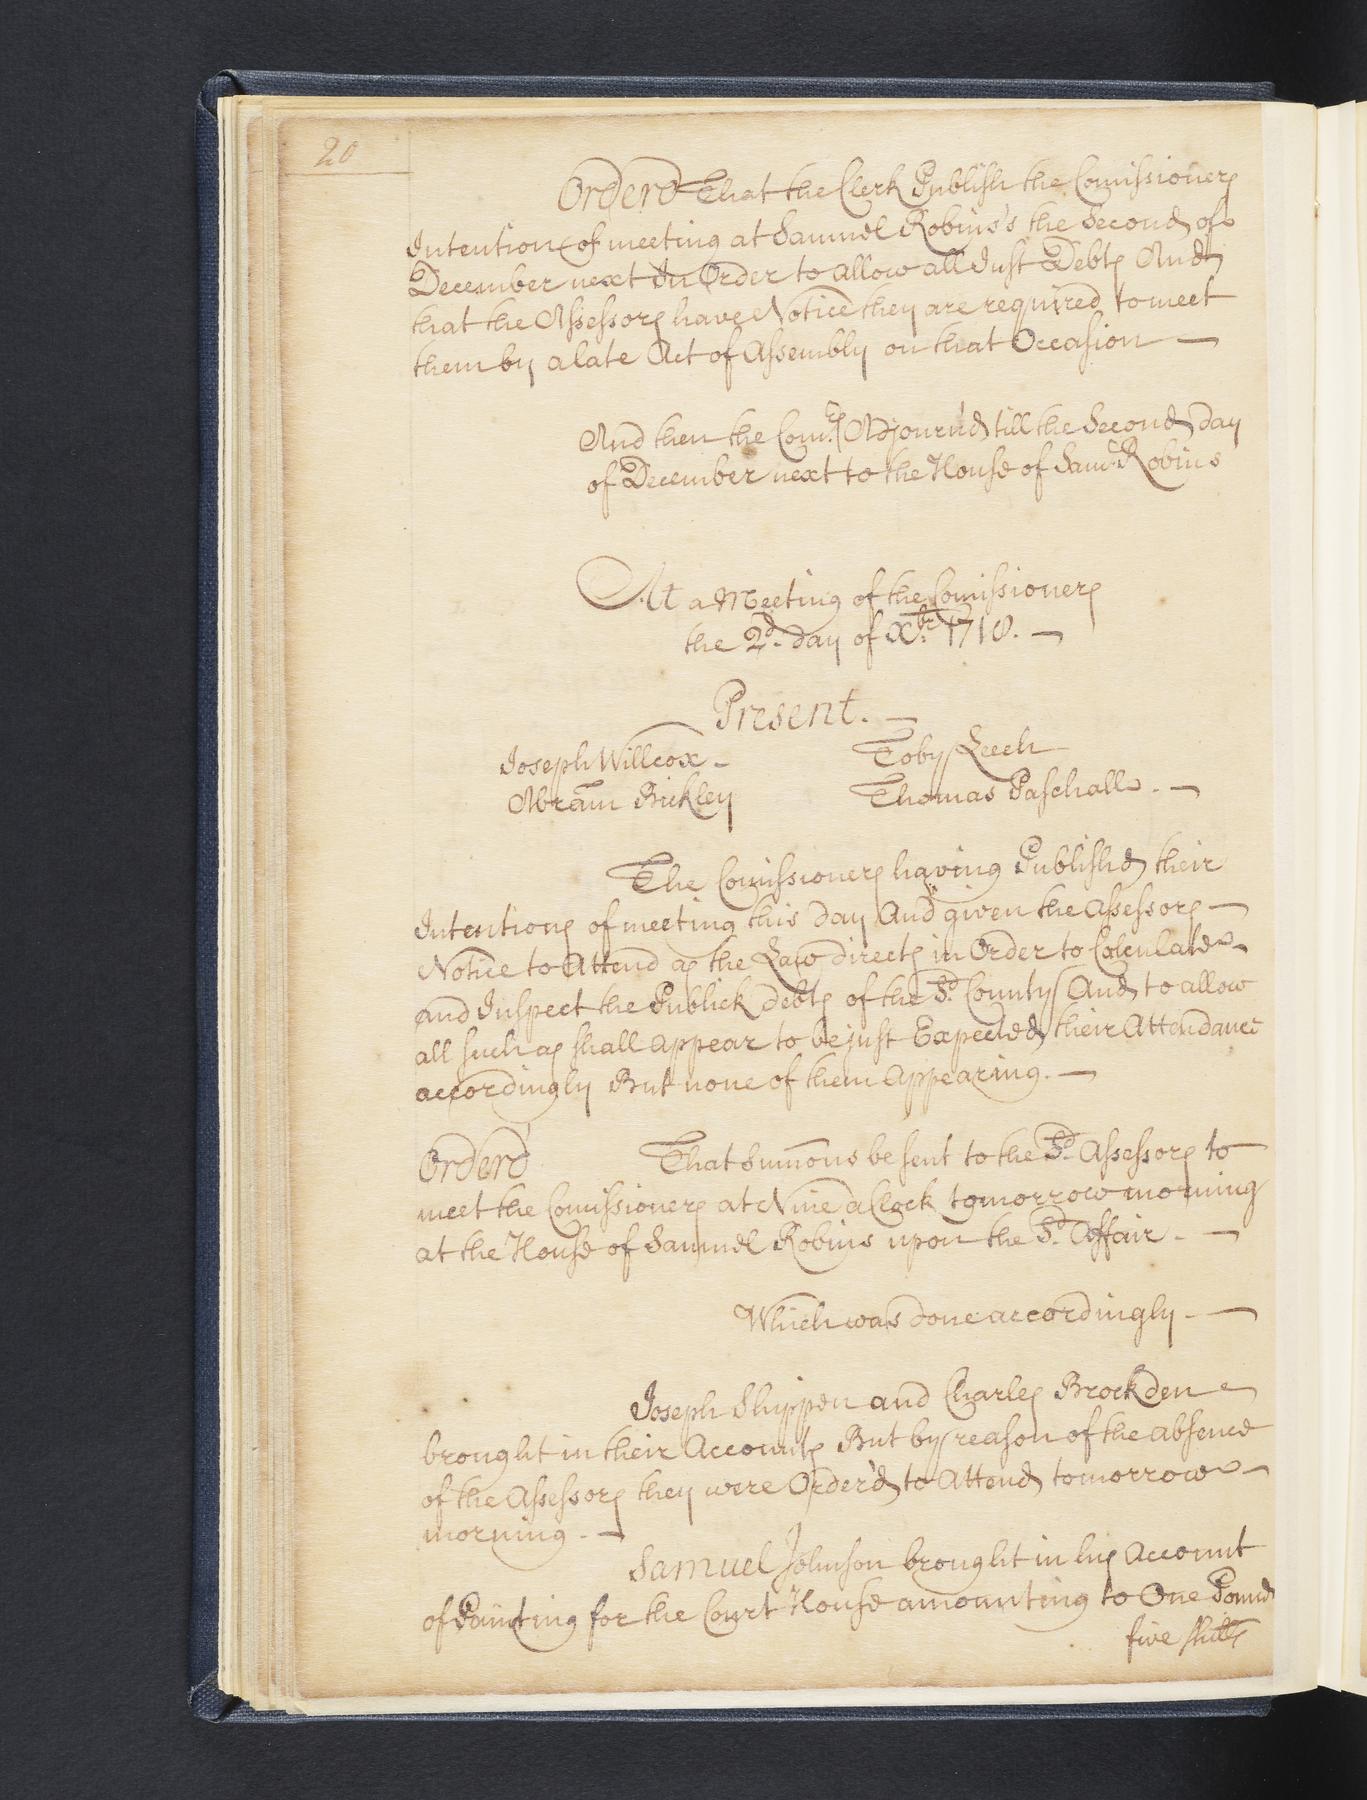 20
Orderd That the Clerk Publish the Comissioners
Intentions of meeting at Samuel Robins's the Second of
December next In Order to allow all Just Debts And
that the Assessors have Notice they are required to meet
them by a late Act of Assembly on that Occasion —
And then the Comrs Adjourn'd till the Second day
of December next to the House of Saml Robins
At a Meeting of the Comissioners
the 2d. day of Xbr. 1718. —
Present. —
Joseph Willcox - Toby Leech
Abram Bickley Thomas Paschall. —
The Comissioners having Publishd their
Intentions of meeting this day And given the Assessors —
Notice to Attend as the Law directs in Order to Calculate -
and Inspect the Publick debts of the Sd. County And to allow
all such as shall appear to be just Expected their Attendance
accordingly But none of them Appearing. —
Orderd That Sumons be sent to the Sd. Assessors to
meet the Comissioners at Nine a Clock tomorrow morning
at the House of Samuel Robins upon the Sd. Affair. —
Which was done accordingly. —
Joseph Shippen and Charles Brockden
brought in their Accounts But by reason of the absence
of the Assessors they were Order'd to Attend tomorrow —
morning. —
Samuel Johnson brought in his Account
of Painting for the Court House amounting to One Pound
five shills